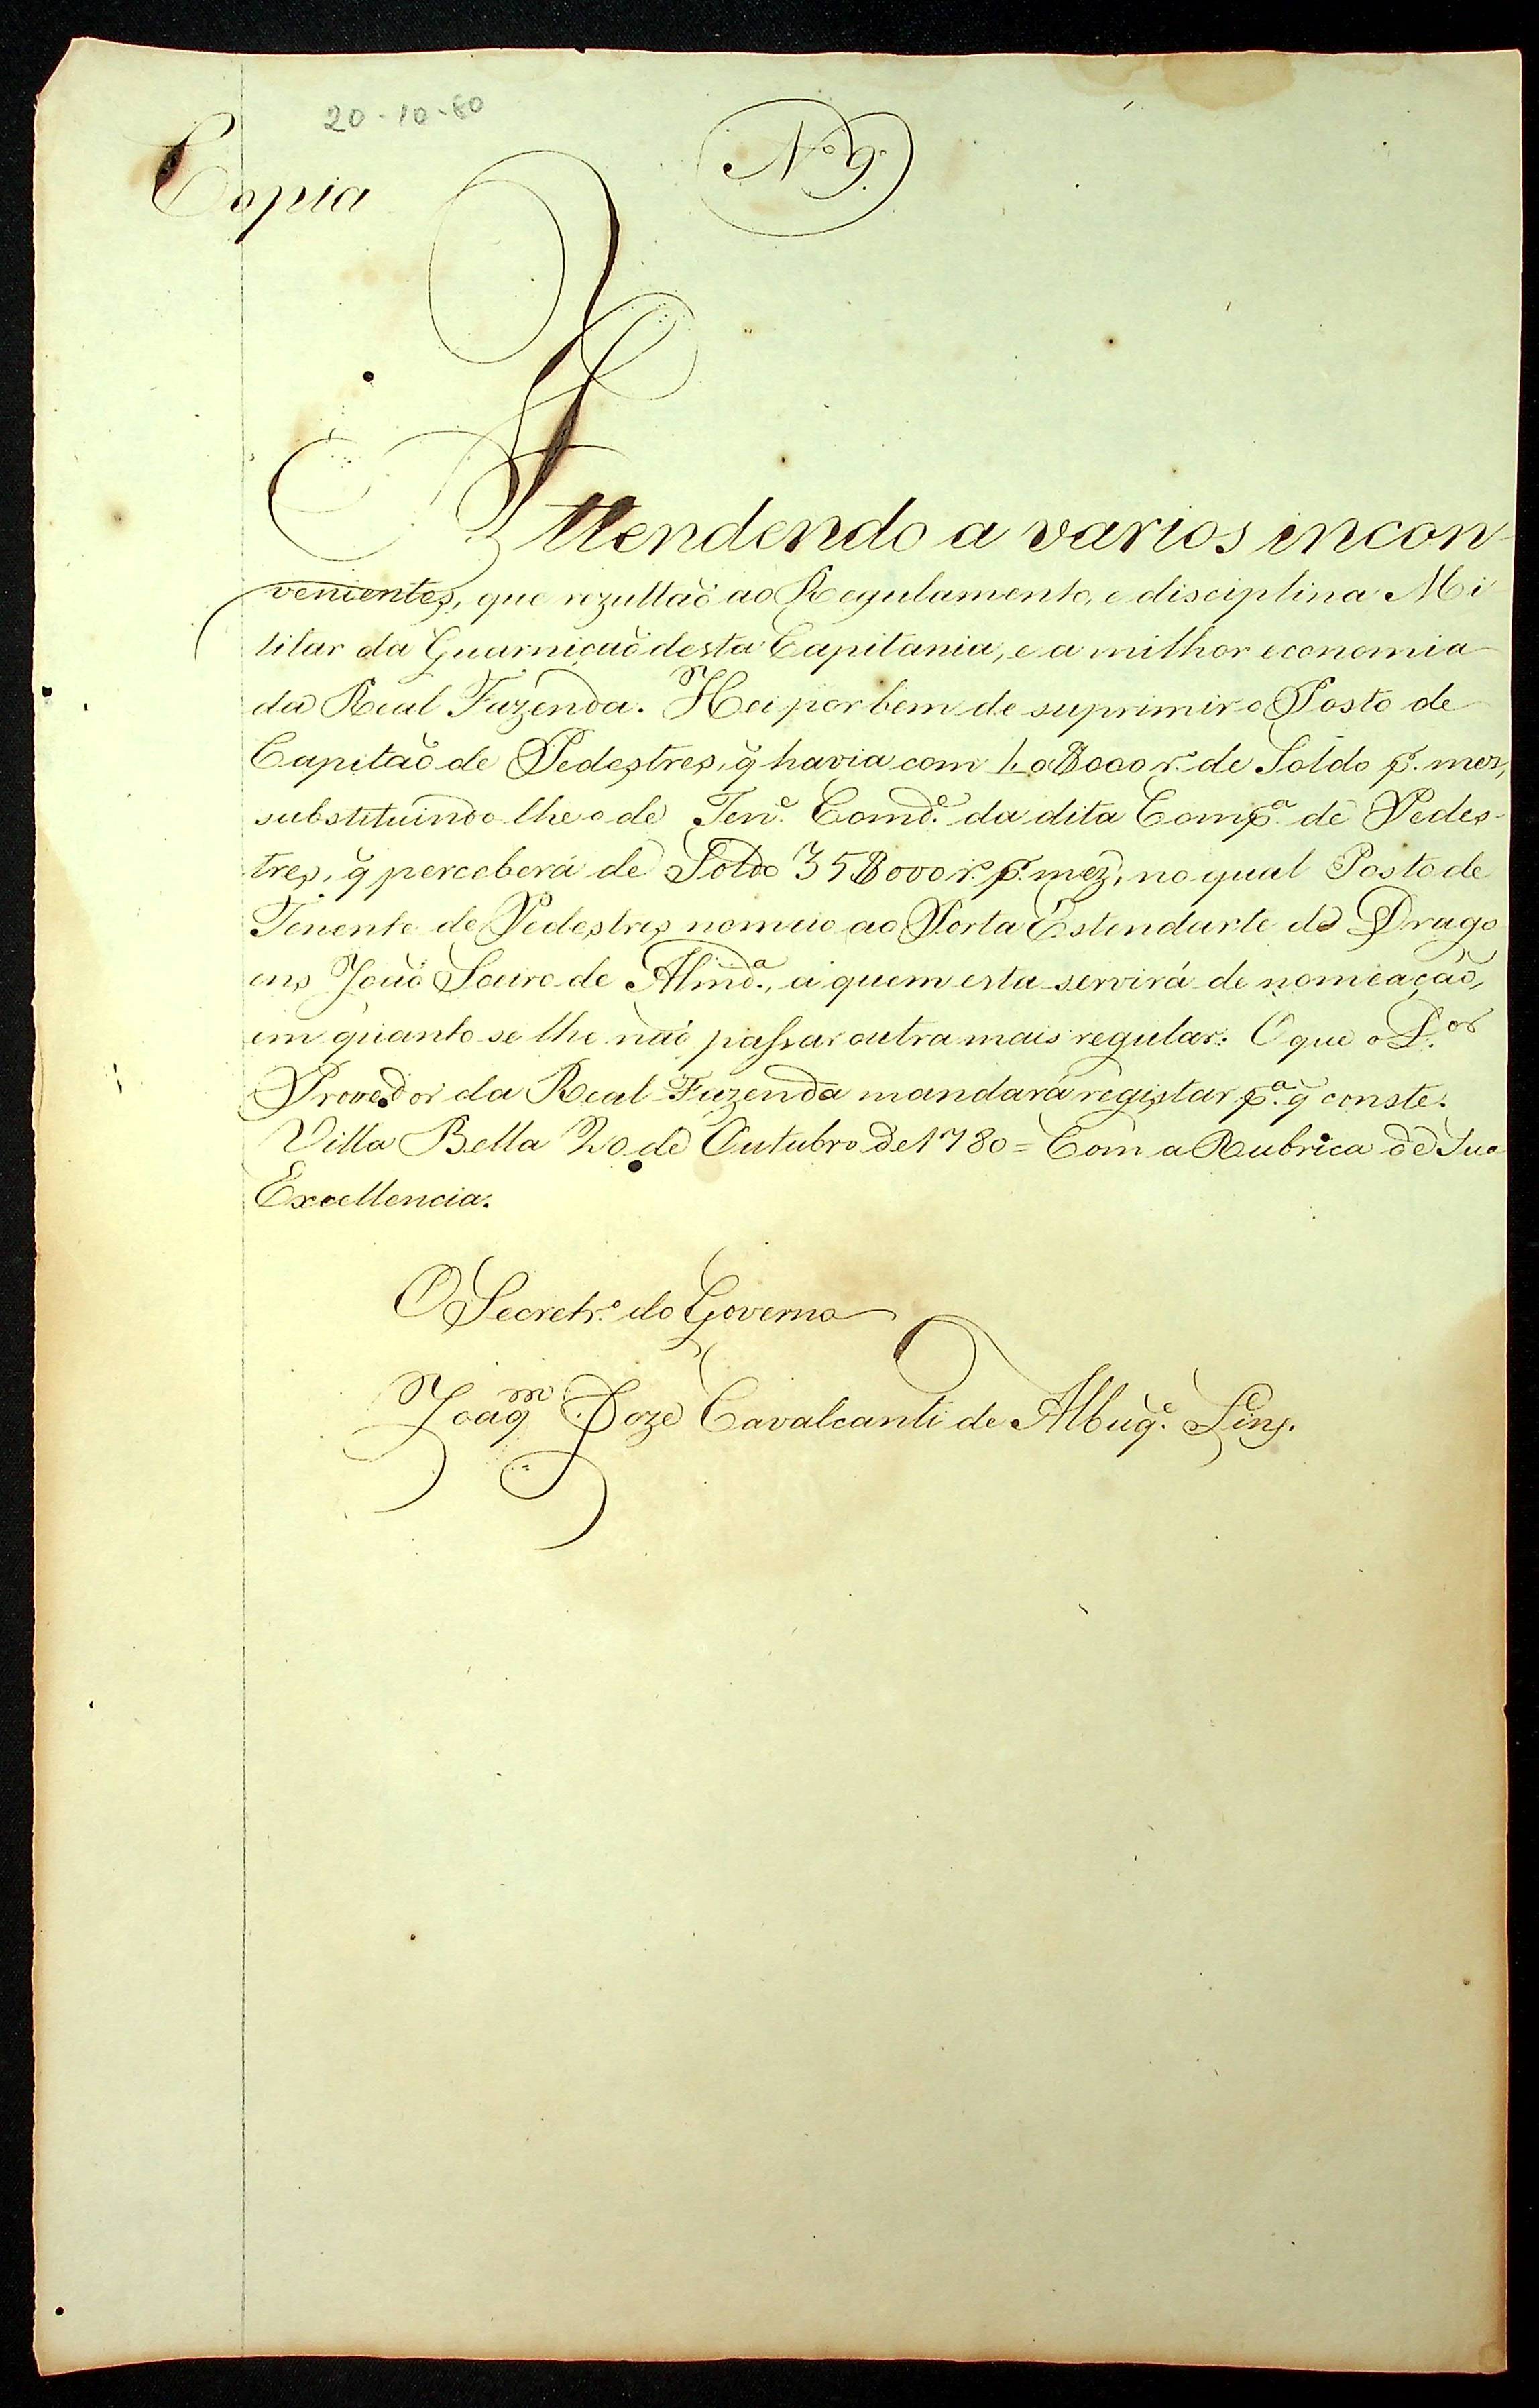 20-10-80
Nº 9.
Copia
Attendendo a varios incon-
venientes, que rezultaõ ao Regulamento, e disciplina Mi-
litar da Guarniçaõ desta Capitania, e a milhor economia
da Real Fazenda. Hei por bem de suprimir o Posto de
Capitaõ de Pedestres, q̃ havia com 40$000 r.s de Soldo p.r mez,
substituindo lhe o de Ten.e Comd.e da dita Comp.a de Pedes-
tres, q̃ perceberá de Soldo 35$000 r.s p.r mez, no qual Posto de
Tenente de Pedestres nomeio ao Porta Estendarte de Drago
ens Joaõ Soeiro de Almd.a, a quem esta servirá de nomeaçaõ,
em quanto se lhe naõ passar outra mais regular: O que o D.or
Provedor da Real Fazenda mandará registar p.a q̃ conste.
Villa Bella 20 de Outubro de 1780 = Com a Rubrica de Sua
Excellencia.
O Secretr.o do Governo
Joaq.m Joze Cavalcanti de Albuq.e Lins.